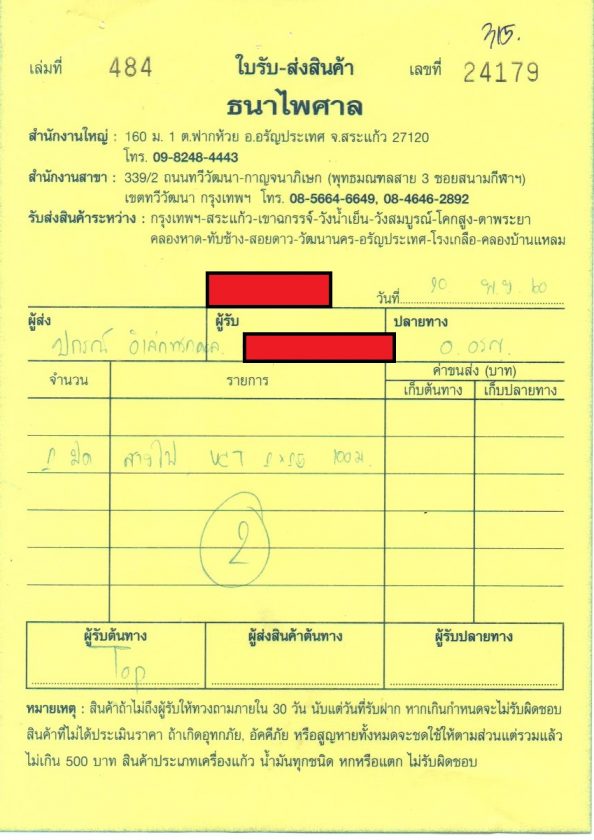 315.
เล่มที่ 484 ใบรับ-ส่งสินค้า เลขที่ 24179
ธนาไพศาล
สำนักงานใหญ่ : 160 ม. 1 ต.ฟากห้วย อ.อรัญประเทศ จ.สระแก้ว 27120
โทร. 09-8248-4443
สำนักงานสาขา : 339/2 ถนนทวีวัฒนา-กาญจนาภิเษก (พุทธมณฑลสาย 3 ซอยสนามกีฬาฯ)
เขตทวีวัฒนา กรุงเทพฯ โทร. 08-5664-6649, 08-4646-2892
รับส่งสินค้าระหว่าง : กรุงเทพฯ-สระแก้ว-เขาฉกรรจ์-วังน้ำเย็น-วังสมบูรณ์-โคกสูง-ตาพระยา
คลองหาด-ทับช้าง-สอยดาว-วัฒนานคร-อรัญประเทศ-โรงเกลือ-คลองบ้านแหลม
วันที่ 10 พ.ย. 60
ผู้ส่ง ผู้รับ ปลายทาง
ปกรณ์
จำนวน รายการ ค่าขนส่ง (บาท)
เก็บต้นทาง เก็บปลายทาง
มัด สายไฟ VCT 100 ม.
2
ผู้รับต้นทาง ผู้ส่งสินค้าต้นทาง ผู้รับปลายทาง
Top
หมายเหตุ : สินค้าถ้าไม่ถึงผู้รับให้ทวงถามภายใน 30 วัน นับแต่วันที่รับฝาก หากเกินกำหนดจะไม่รับผิดชอบ
สินค้าที่ไม่ได้ประเมินราคา ถ้าเกิดอุทกภัย, อัคคีภัย หรือสูญหายทั้งหมดจะชดใช้ให้ตามส่วนแต่รวมแล้ว
ไม่เกิน 500 บาท สินค้าประเภทเครื่องแก้ว น้ำมันทุกชนิด หกหรือแตก ไม่รับผิดชอบ